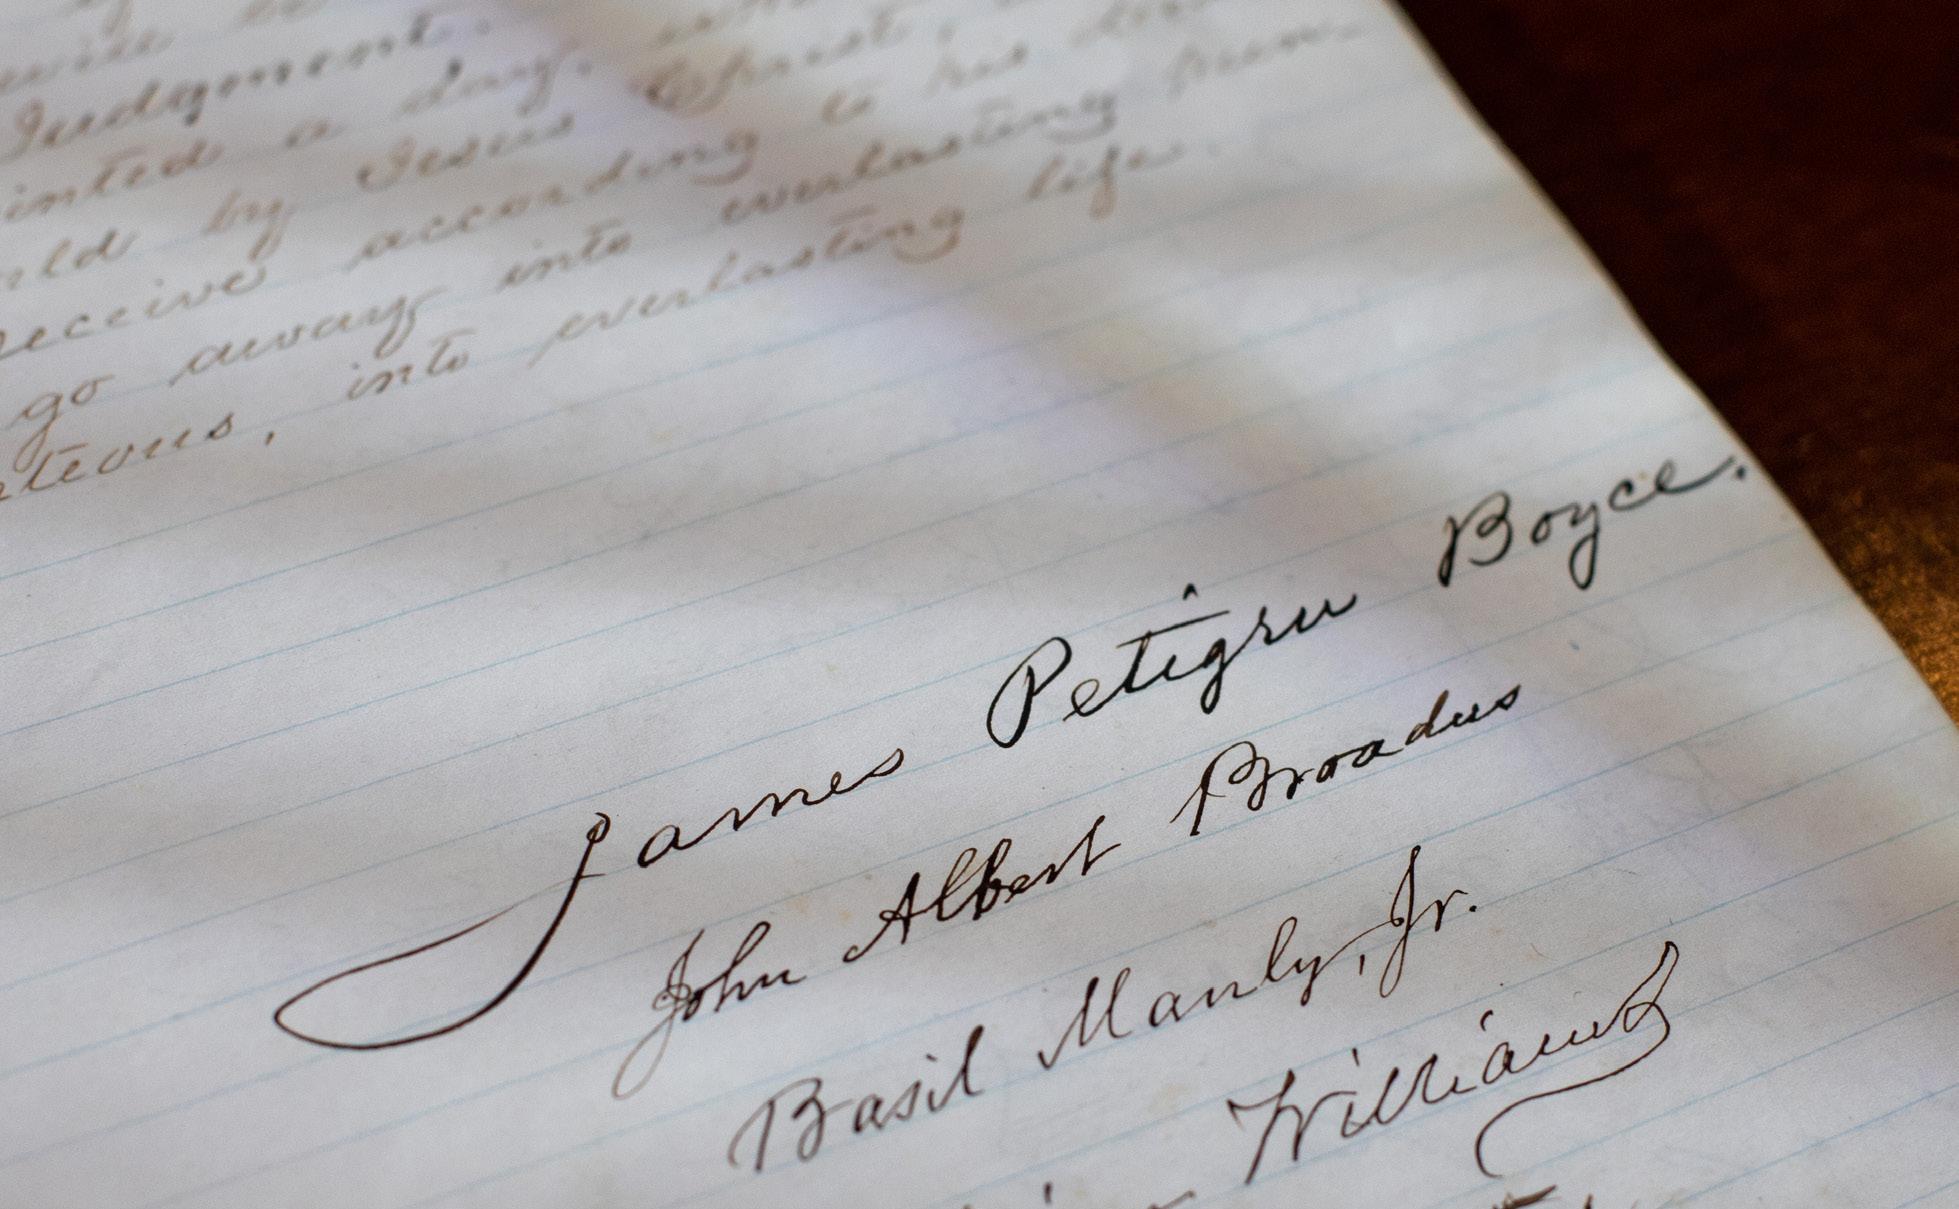 Judgment.
inted a day,
rld by Jesus Christ,
receive according to his
go away into everlasting pun-
teous, into everlasting life.
James Petigru Boyce.
John Albert Broadus
Basil Manly, Jr.
Williams